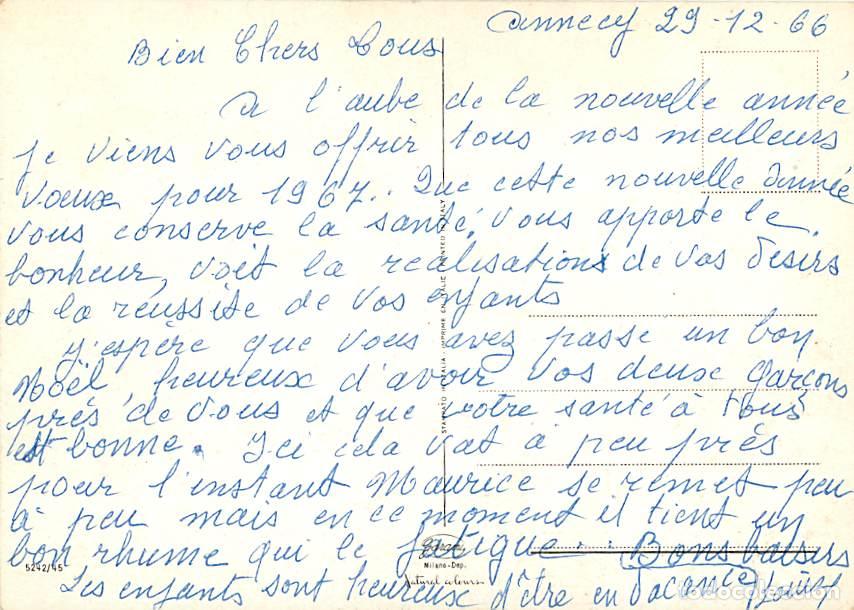 annecy 29-12-66
Bien Chers Tous
A l'aube de la nouvelle année
je viens vous offrir tous nos meilleurs
voeux pour 1967.. Que cette nouvelle année
vous conserve la santé, vous apporte le
bonheur, voit la réalisations de vos désirs
et la réussite de vos enfants
J'espère que vous avez passe un bon
Noël, heureux d'avoir vos deux garçons
près de vous et que votre santé à tous
est bonne. Ici cela vat à peu près
pour l'instant Maurice se remet peu
à peu mais en ce moment il tient un
bon rhume qui le fatigue.. Bons baisers
Les enfants sont heureux d'être en vacance
STAMPATO IN ITALIA - IMPRIMÉ EN ITALIE - PRINTED IN ITALY
5242/45
Milano-Dep.
Natural colours
todocoleccion